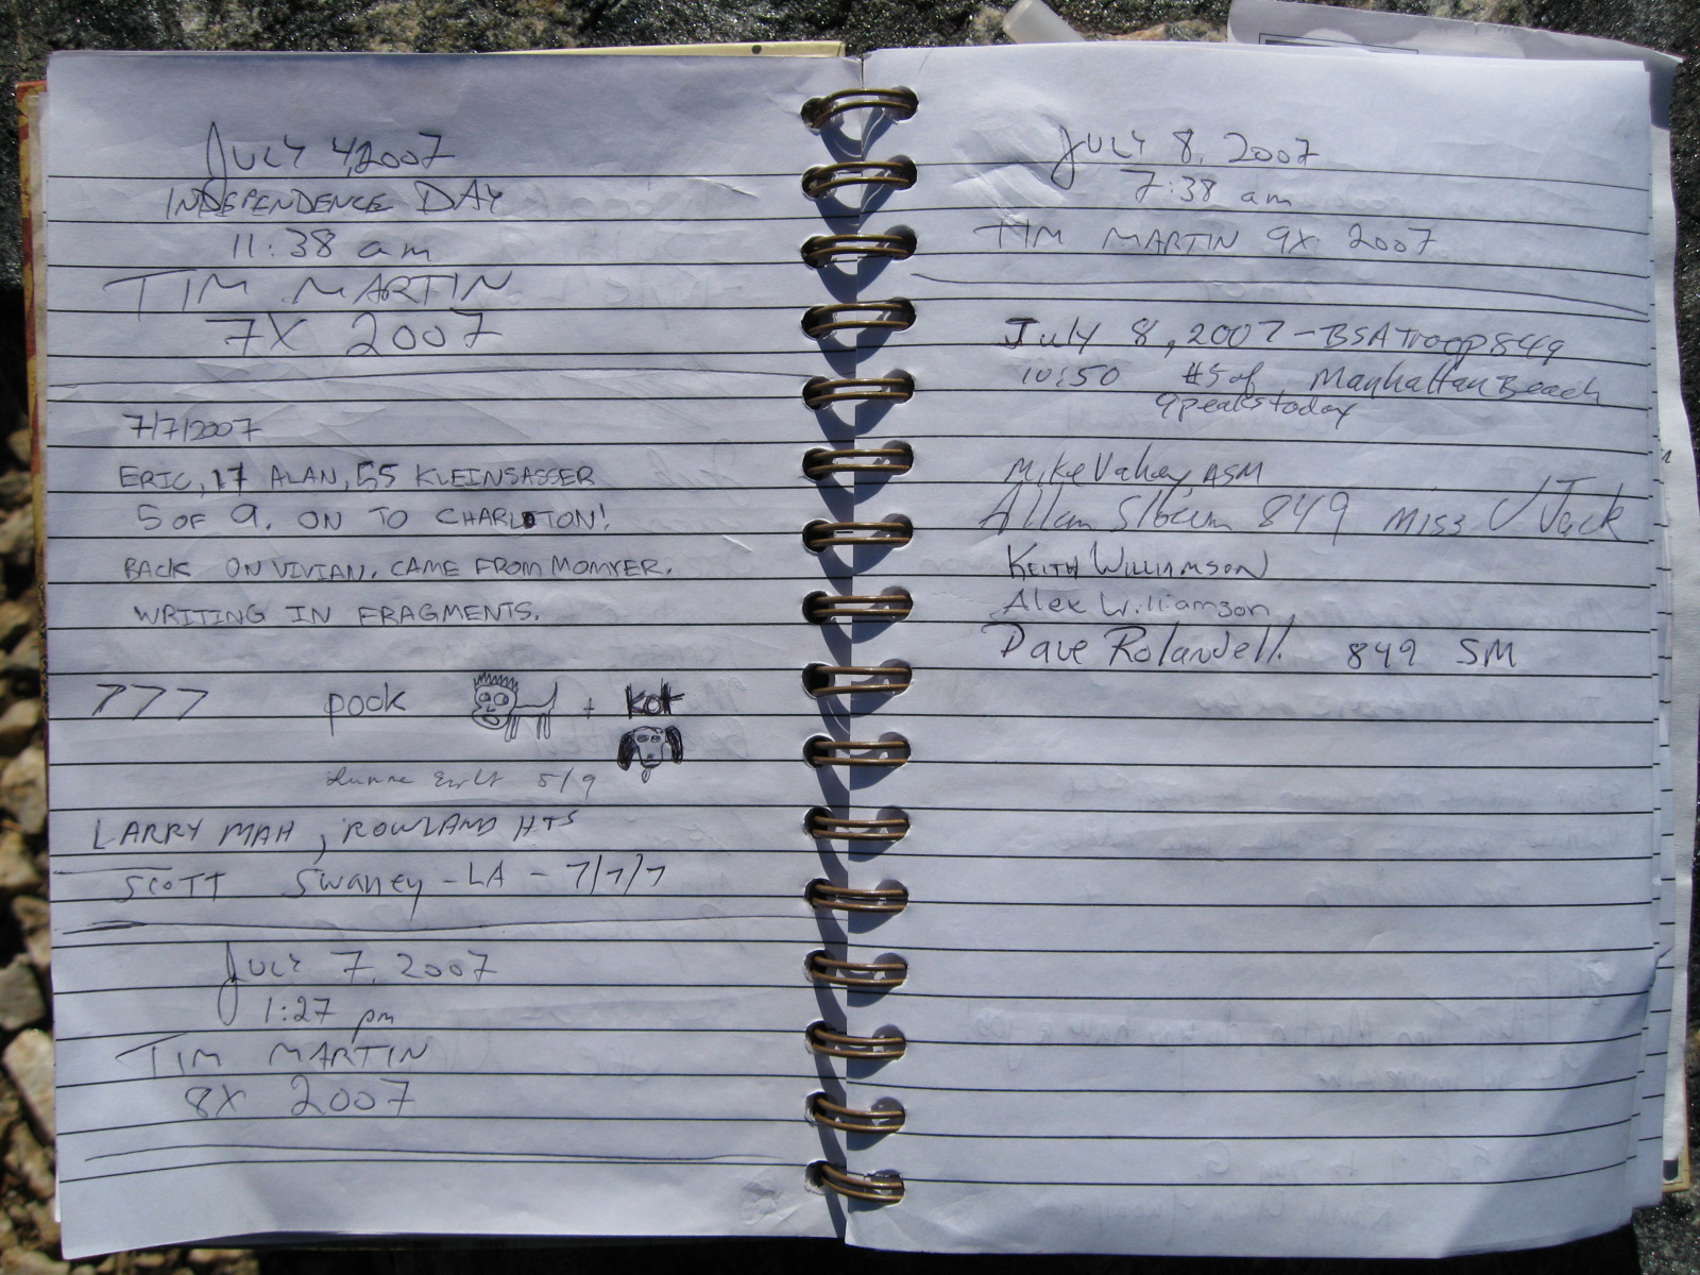 JULY 4, 2007
INDEPENDENCE DAY
11:38 am
TIM MARTIN
7X 2007
7/7/2007
ERIC, 17 ALAN, 55 KLEINSASSER
5 OF 9. ON TO CHARLTON!
BACK ON VIVIAN. CAME FROM MOMYER.
WRITING IN FRAGMENTS.
777 pook + kot
5/9
LARRY MAH, ROWLAND HTS
SCOTT Swaney - LA - 7/7/7
JULY 7, 2007
1:27 pm
TIM MARTIN
8X 2007
JULY 8, 2007
7:38 am
TIM MARTIN 9X 2007
July 8, 2007 - BSA Troop 849
10:50 #5 of Manhattan Beach
9 peaks today
Mike Vahey, ASM
Allan 849 MISS U Jack
KEITH WILLIAMSON
Alex Williamson
Dave Rolandelli 849 SM